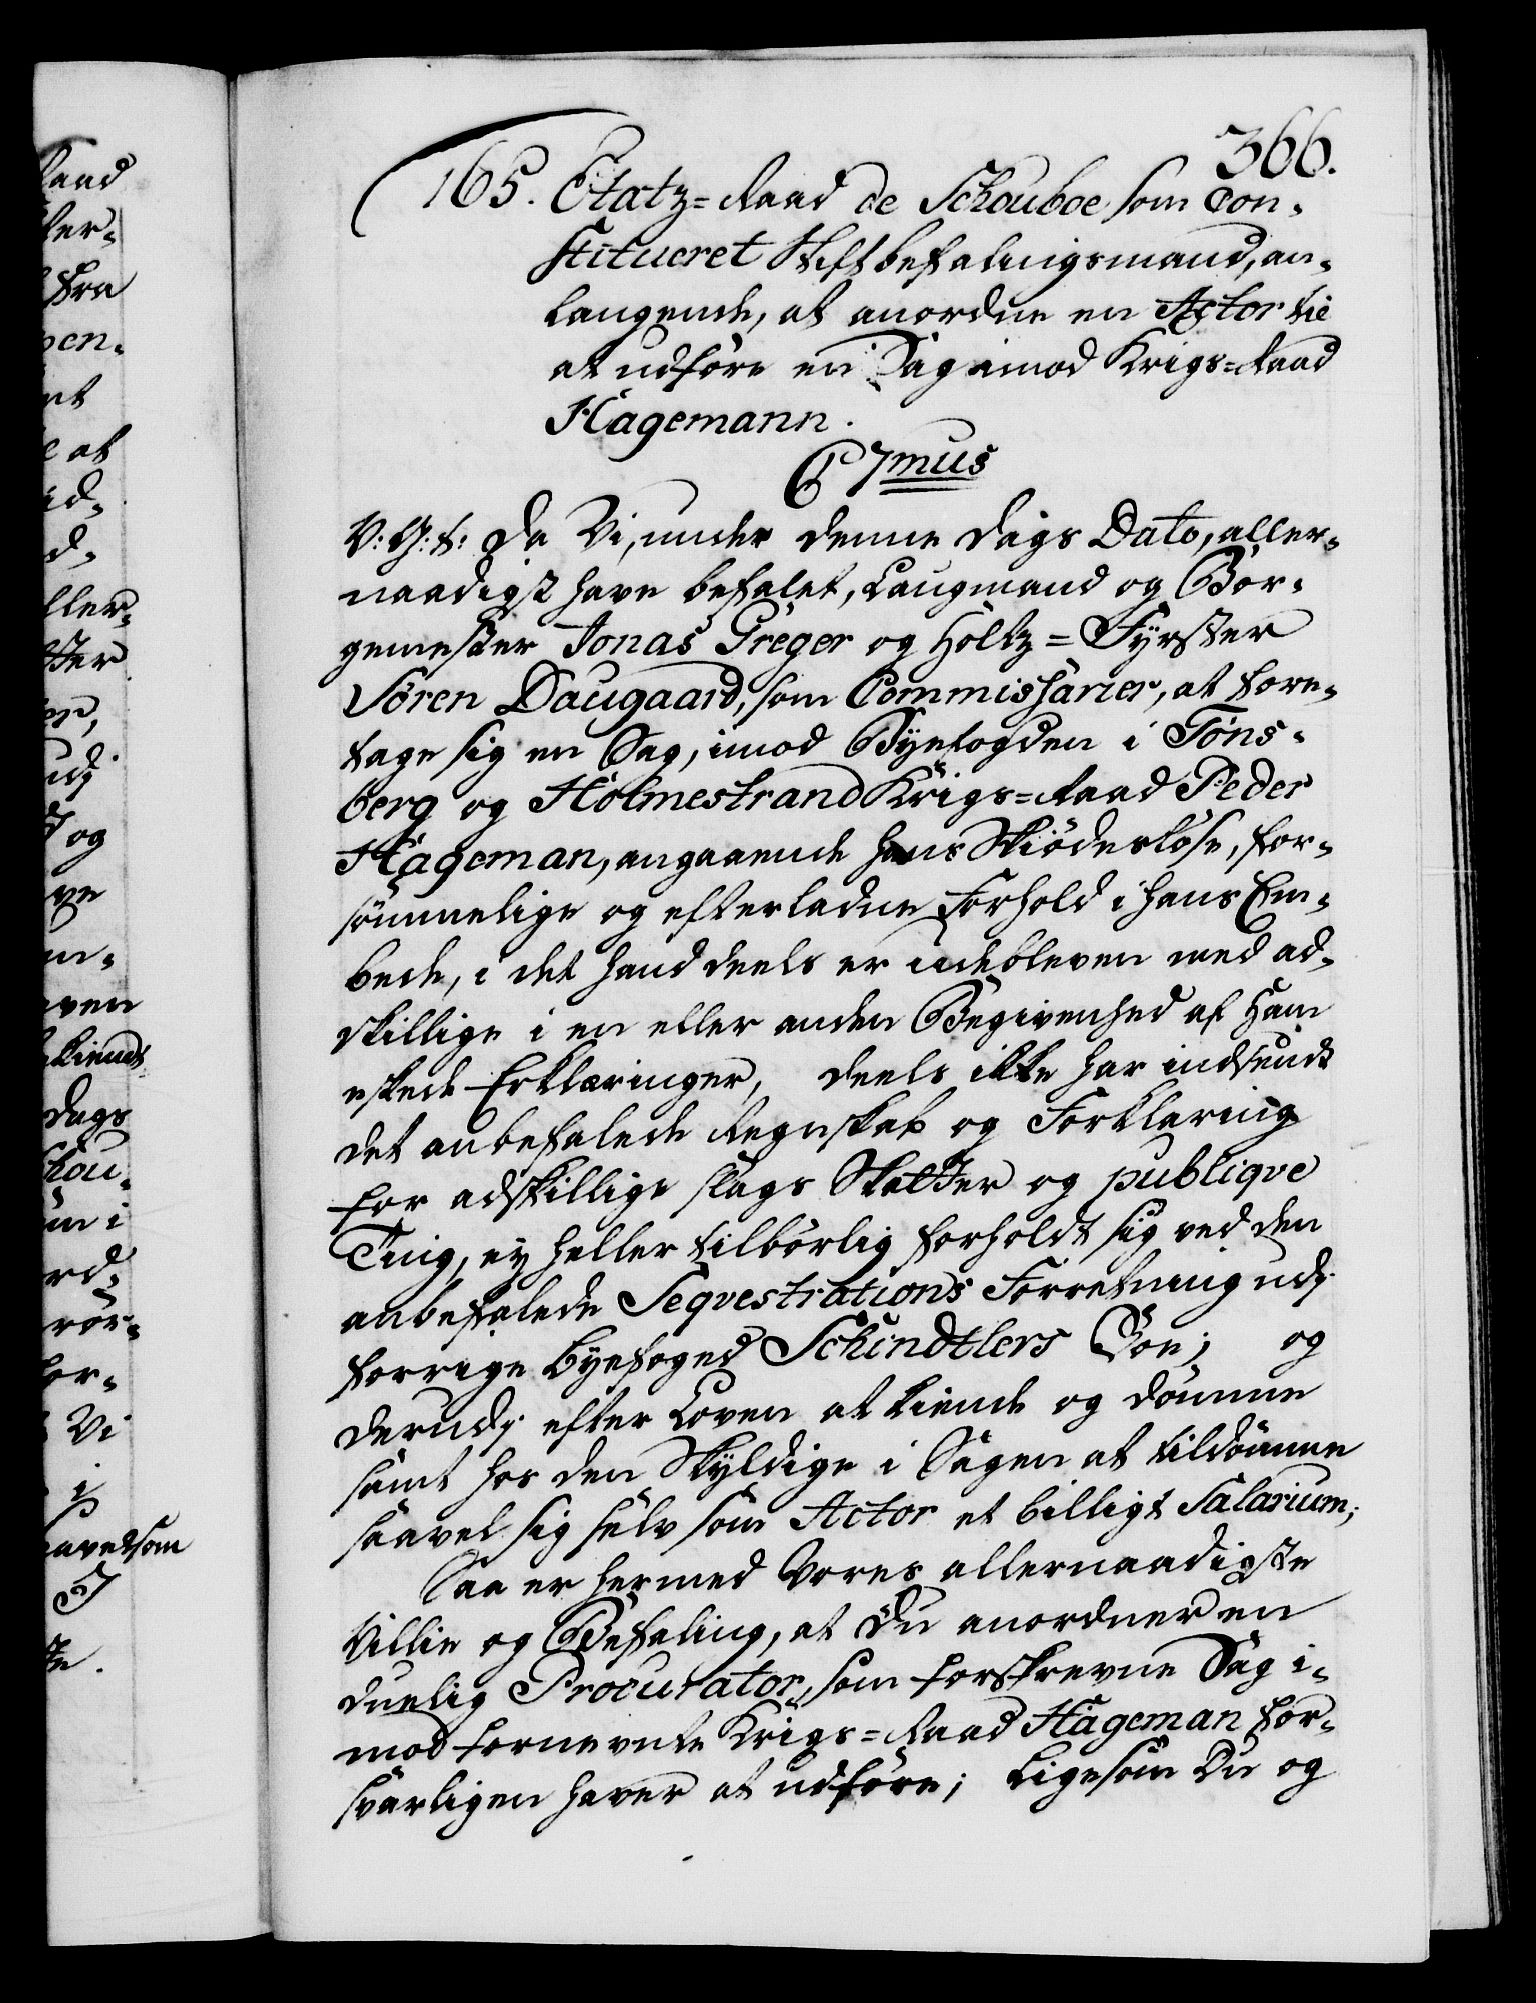 366.
165. Etatz=Raad de Schouboe som Con-
stitueret Stiftbefalingsmand, an-
langende, at anordne en Actor til
at udføre en Sag imod Krigs=Raad
Hagemann.
C 7mus
V: G: t: Da Vi, under denne Dags Dato, aller-
naadigst have befalet, Laugmand og Bor-
gemester Jonas Greger og Holtz=Fyrster
Sören Daugaard, som Commissarier, at fore-
tage sig en Sag, imod Byefogden i Töns-
berg og Holmestrand Krigs=Raad Peder
Hageman, angaaende hans Skiödesløse, for-
sömmelige og efterladne Forhold i hans Em-
bede, i det hand deels er udebleven med ad-
skillige i en eller anden Begivenhed af Ham
eskede Erklæringer, deels ikke har indsendt
det anbefalede Regnskab og Forklaring
for adskillige slags Skatter og publiqve
Ting, ey heller tilbörlig forholdt sig ved den
anbefalede Seqvestrations Forretning udj
forrige Byefoged Schindtlers Boe; og
derudj efter Loven at kiende og dömme
samt hos den Skyldige i Sagen at tildömme
saavel sig selv som Actor et billigt Salarium;
Saa er hermed Vores allernaadigste
Villie og Befaling, at Du anordner en
duelig Procurator, som forskrevne Sag i-
mod fornevnte Krigs=Raad Hageman for-
svarligen haver at udføre; Ligesom Du og
Raad
fra
at
ller-
og
ven
kiendt
Dags
Vi
i
saavelsom